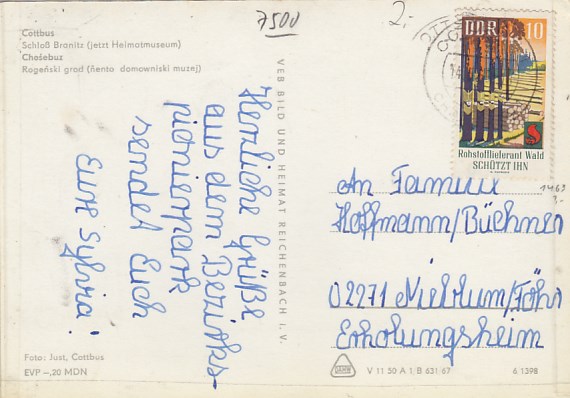 7500
2.-
Cottbus
Schloß Branitz (jetzt Heimatmuseum)
Chośebuz
Rogeński grod (ńento domowniski muzej)
Herzliche Grüße
aus dem Bezirks-
pionierpark
sendet Euch
Eure Sylvia!
VEB BILD UND HEIMAT REICHENBACH I. V.
DDR 10
Rohstofflieferant Wald
SCHÜTZT IHN
1463
An Familie
Hoffmann/Büchner
02271 Nieblum/Föhr
Erholungsheim
Foto: Just, Cottbus
EVP –,20 MDN
V 11 50 A 1 B 631/67
6 1398